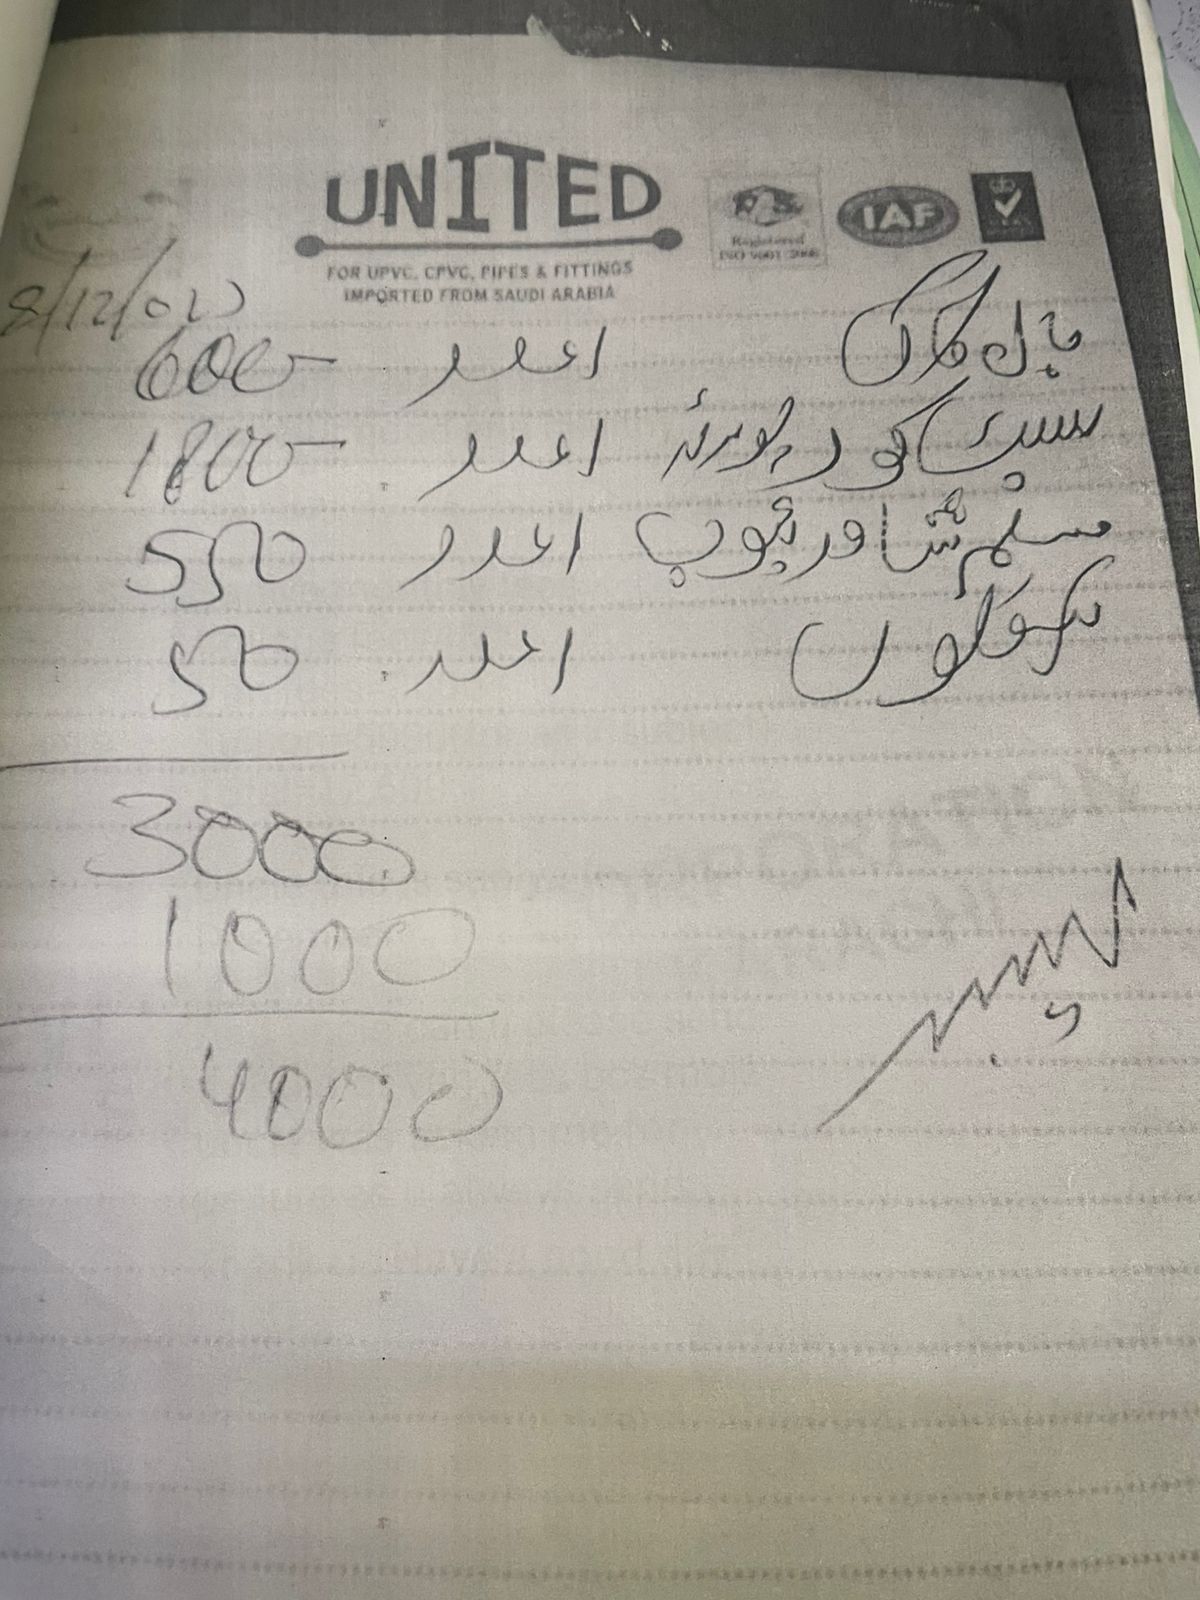 UNITED
FOR UPVC, CPVC, PIPES & FITTINGS
IMPORTED FROM SAUDI ARABIA
Registered
ISO 9001:2008
IAF
8/12/02
1 عدد 600
سیٹ کور 1 عدد 1800
مسلم شاور ٹیوب 1 عدد 550
1 عدد 50
3000
1000
4000